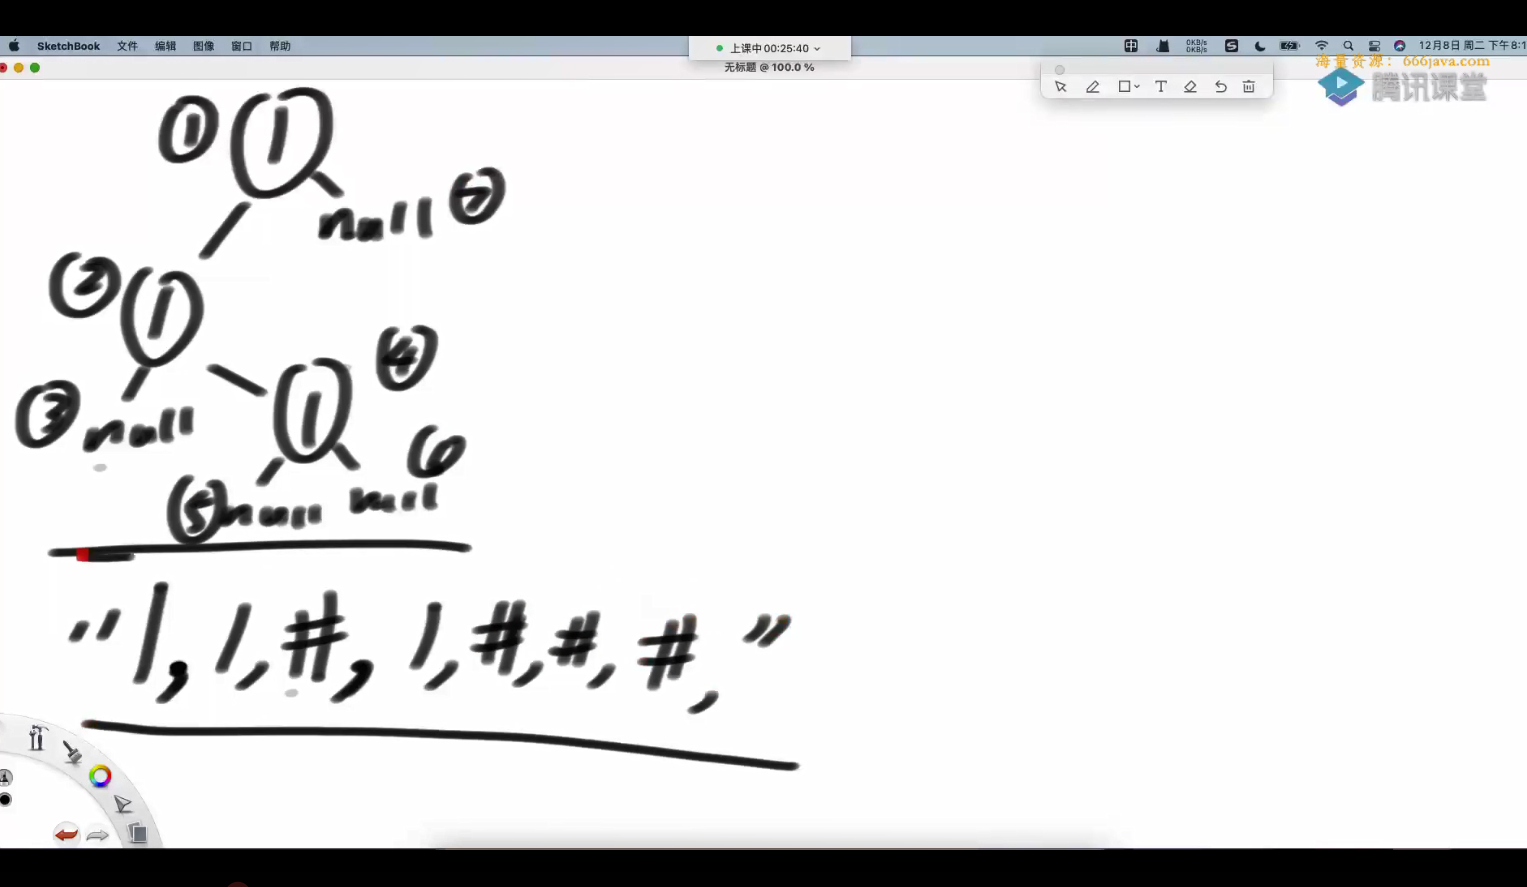 SketchBook 文件 编辑 图像 窗口 帮助
上课中 00:25:40
0KB/s
0KB/s
12月8日 周二 下午8:1
无标题 @ 100.0 %
海量资源：666java.com
腾讯课堂
T
① 1
null ⑦
② 1
③ null
1 ④
⑤ null null ⑥
"1,1,#,1,#,#,#,"